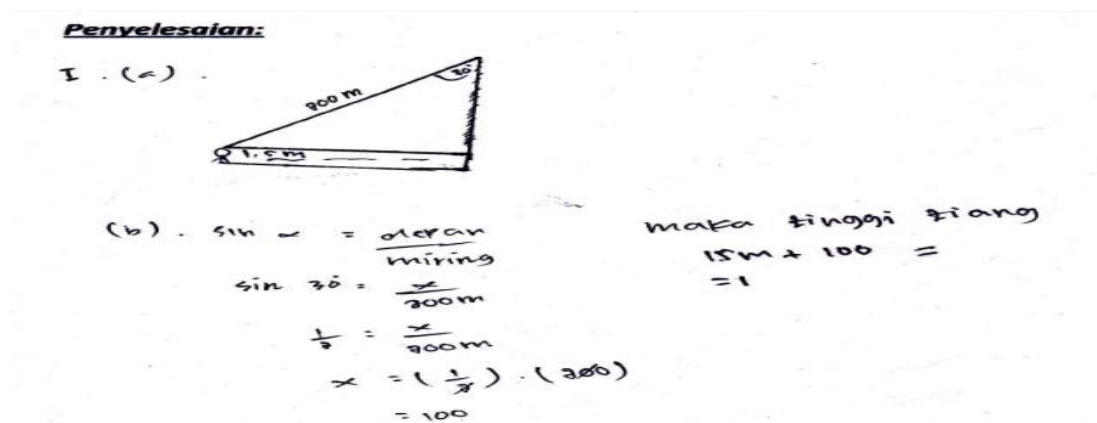 Penyelesaian:
I . (a) .
30°
200 m
1.5m
(b) . sin α = depan / miring
sin 30° = x / 200m
1/2 = x / 200m
x = (1/2) . (200)
= 100
maka tinggi tiang
15m + 100 =
= 1